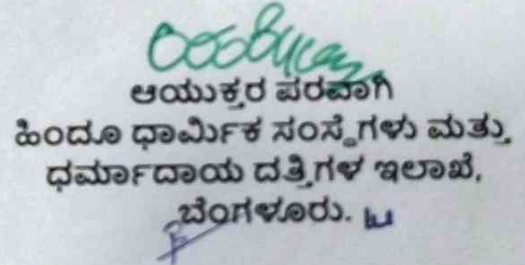 ಆಯುಕ್ತರ ಪರವಾಗಿ
ಹಿಂದೂ ಧಾರ್ಮಿಕ ಸಂಸ್ಥೆಗಳು ಮತ್ತು
ಧರ್ಮಾದಾಯ ದತ್ತಿಗಳ ಇಲಾಖೆ,
ಬೆಂಗಳೂರು.